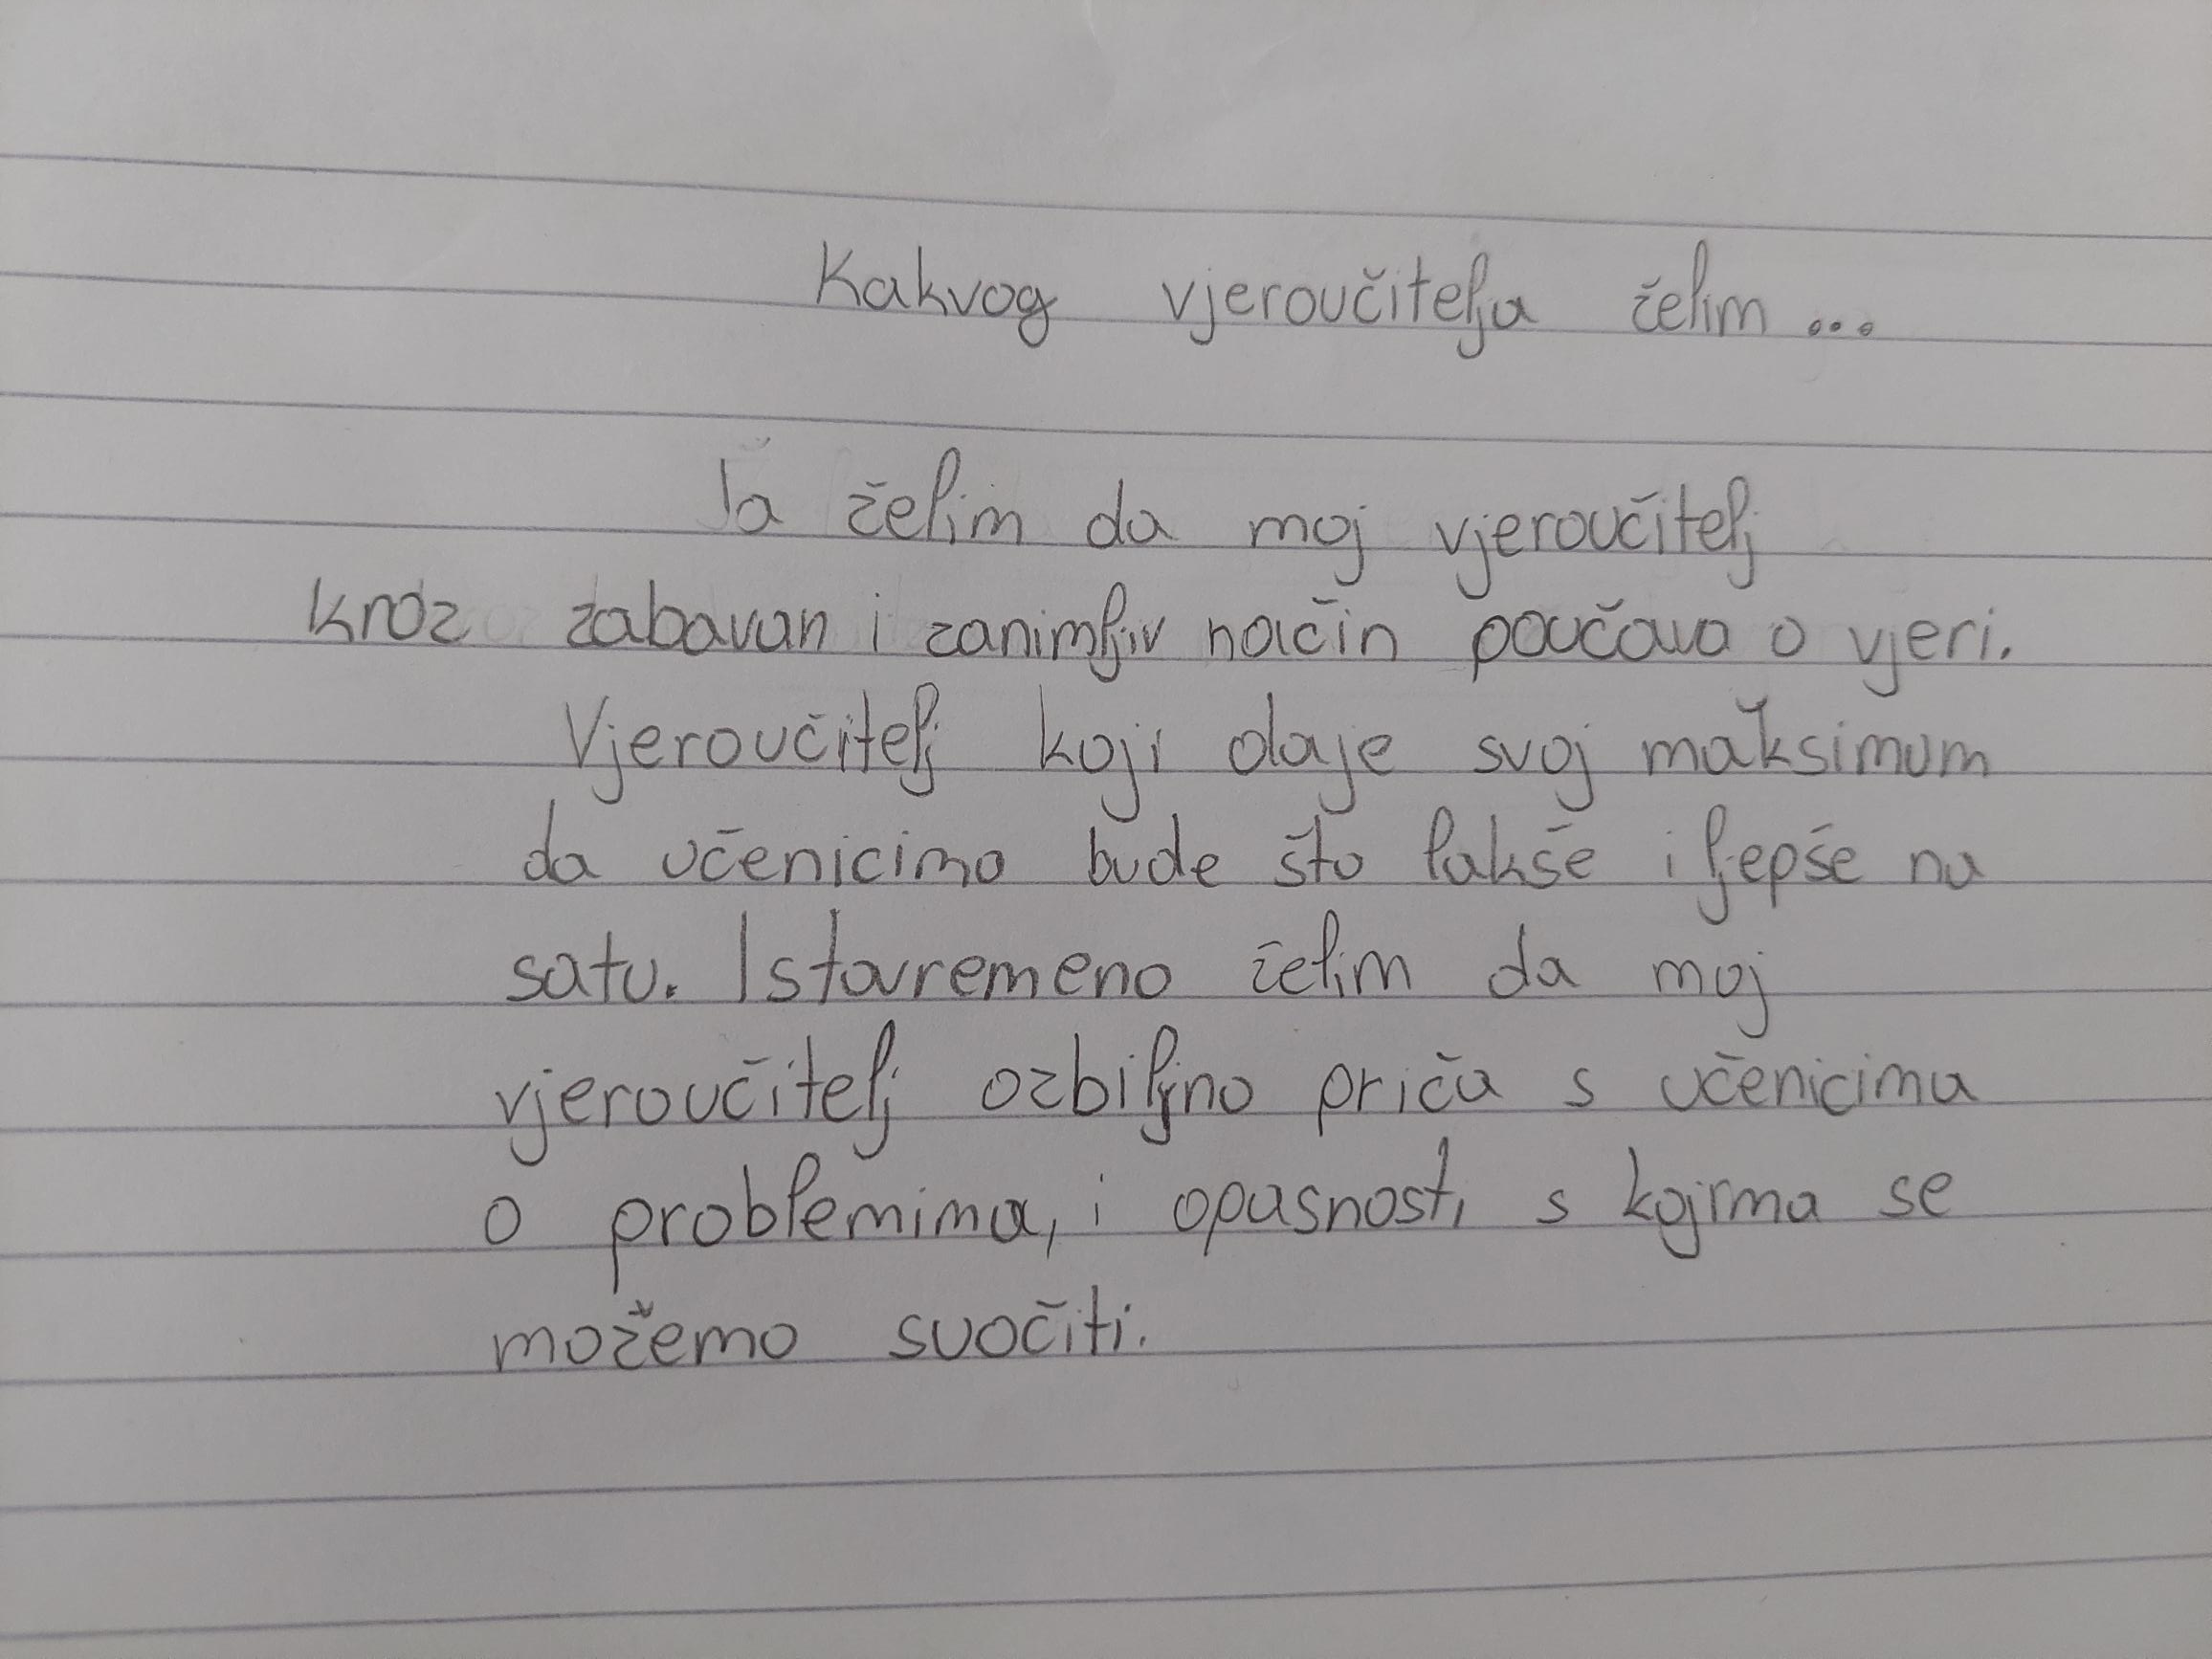 Kakvog vjeroučitelja želim...
Ja želim da moj vjeroučitelj
kroz zabavan i zanimljiv način poučava o vjeri.
Vjeroučitelj koji daje svoj maksimum
da učenicima bude što lakše i ljepše na
satu. Istovremeno želim da moj
vjeroučitelj ozbiljno priča s učenicima
o problemima, i opasnosti s kojima se
možemo suočiti.